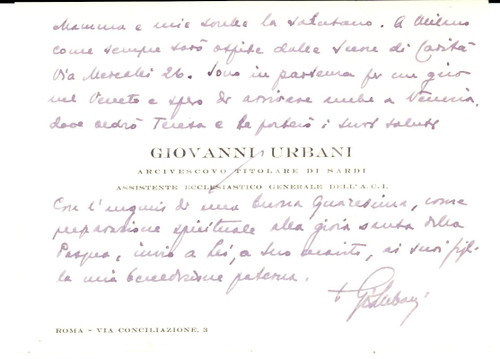 Mamma e mie sorelle la salutano. A Milano
come sempre sarò ospite delle Suore di Carità
Via Mercalli 26. Sono in partenza per un giro
nel Veneto e spero di arrivare anche a Venezia,
dove vedrò Teresa e le porterò i suoi saluti
GIOVANNI URBANI
ARCIVESCOVO TITOLARE DI SARDI
ASSISTENTE ECCLESIASTICO GENERALE DELL'A.C.I.
Con l'augurio di una buona Quaresima, come
preparazione spirituale alla gioia santa della
Pasqua, invio a Lei, a suo marito, ai suoi figli
la mia benedizione paterna.
+ G. Urbani
ROMA - VIA CONCILIAZIONE, 3